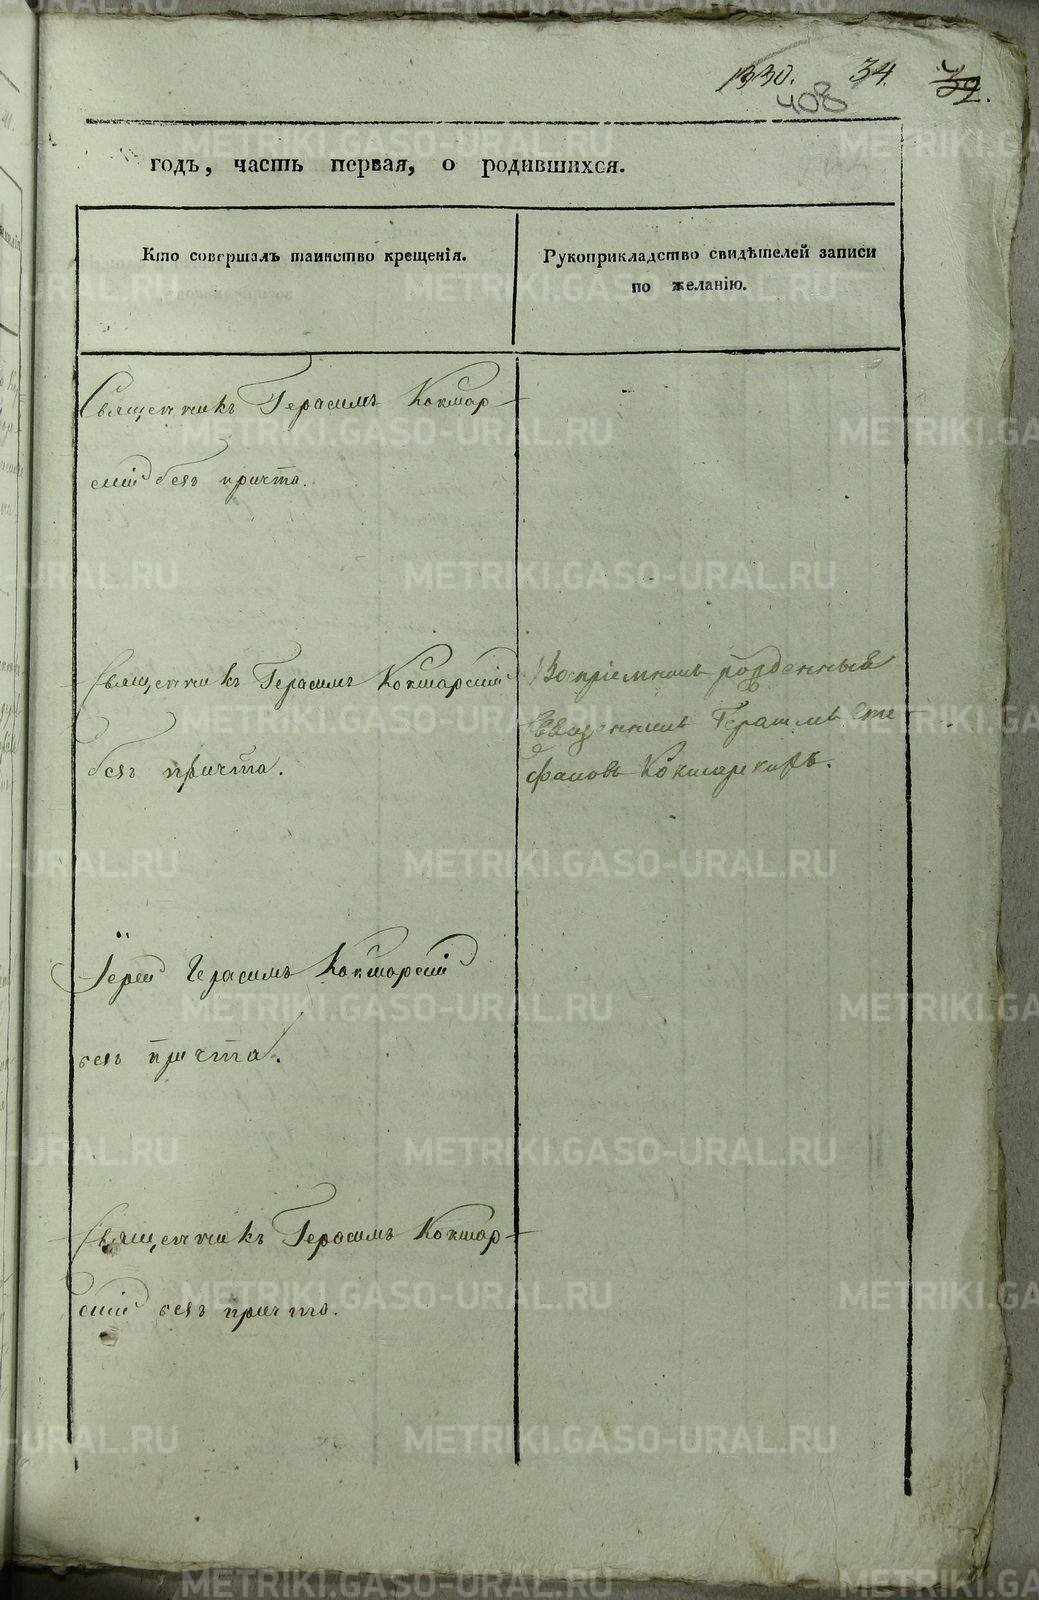 1330. 34. 32.
408
годъ, часть первая, о родившихся.
Кто совершалъ таинство крещенія.
Рукоприкладство свидѣтелей записи
по желанію.
Священникъ Герасимъ Кокшар-
скій безъ причта.
Священникъ Герасимъ Кокшарскій
безъ причта.
Воспріемникъ
Священникъ Герасимъ Сте
фановъ
Іерей Герасимъ Кокшарскій
безъ причта.
Священникъ Герасимъ Кокшар-
скій безъ причта.
METRIKI.GASO-URAL.RU